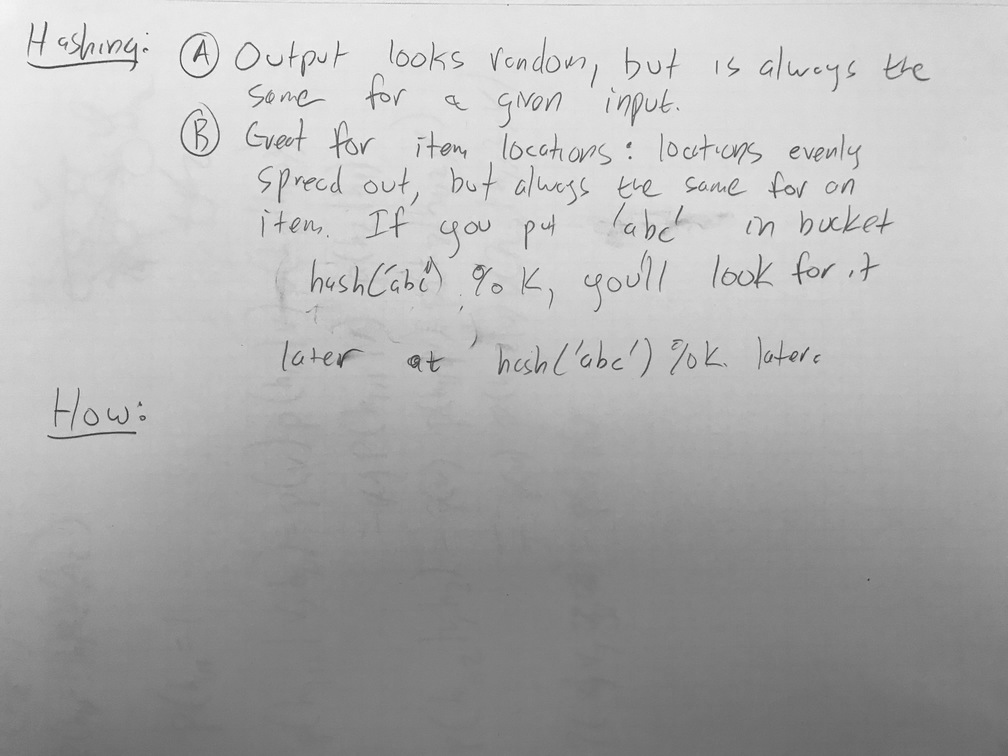 Hashing: Ⓐ Output looks random, but is always the
same for a given input.
Ⓑ Great for item locations: locations evenly
spread out, but always the same for an
item. If you put 'abc' in bucket
hash('abc') % K, you'll look for it
later at hash('abc') % K later.
How: